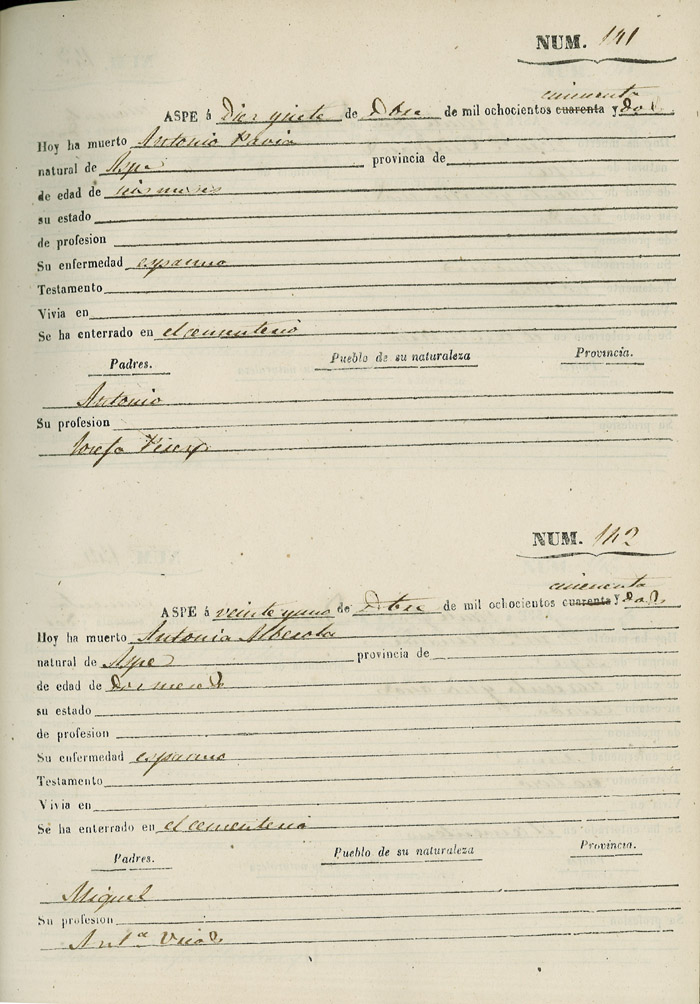 NUM. 141
cincuenta
ASPE á Diez y siete de Dbre de mil ochocientos cuarenta y dos
Hoy ha muerto Antonio Pavia
natural de Aspe provincia de
de edad de seis meses
su estado
de profesion
Su enfermedad espasmo
Testamento
Vivia en
Se ha enterrado en el cementerio
Padres. Pueblo de su naturaleza Provincia.
Antonio
Su profesion
Josefa
NUM. 142
cincuenta
ASPE á veinte y uno de Dbre de mil ochocientos cuarenta y dos
Hoy ha muerto Antonia Alberola
natural de Aspe provincia de
de edad de dos meses
su estado
de profesion
Su enfermedad espasmo
Testamento
Vivia en
Se ha enterrado en el cementerio
Padres. Pueblo de su naturaleza Provincia.
Miguel
Su profesion
Ant.ª